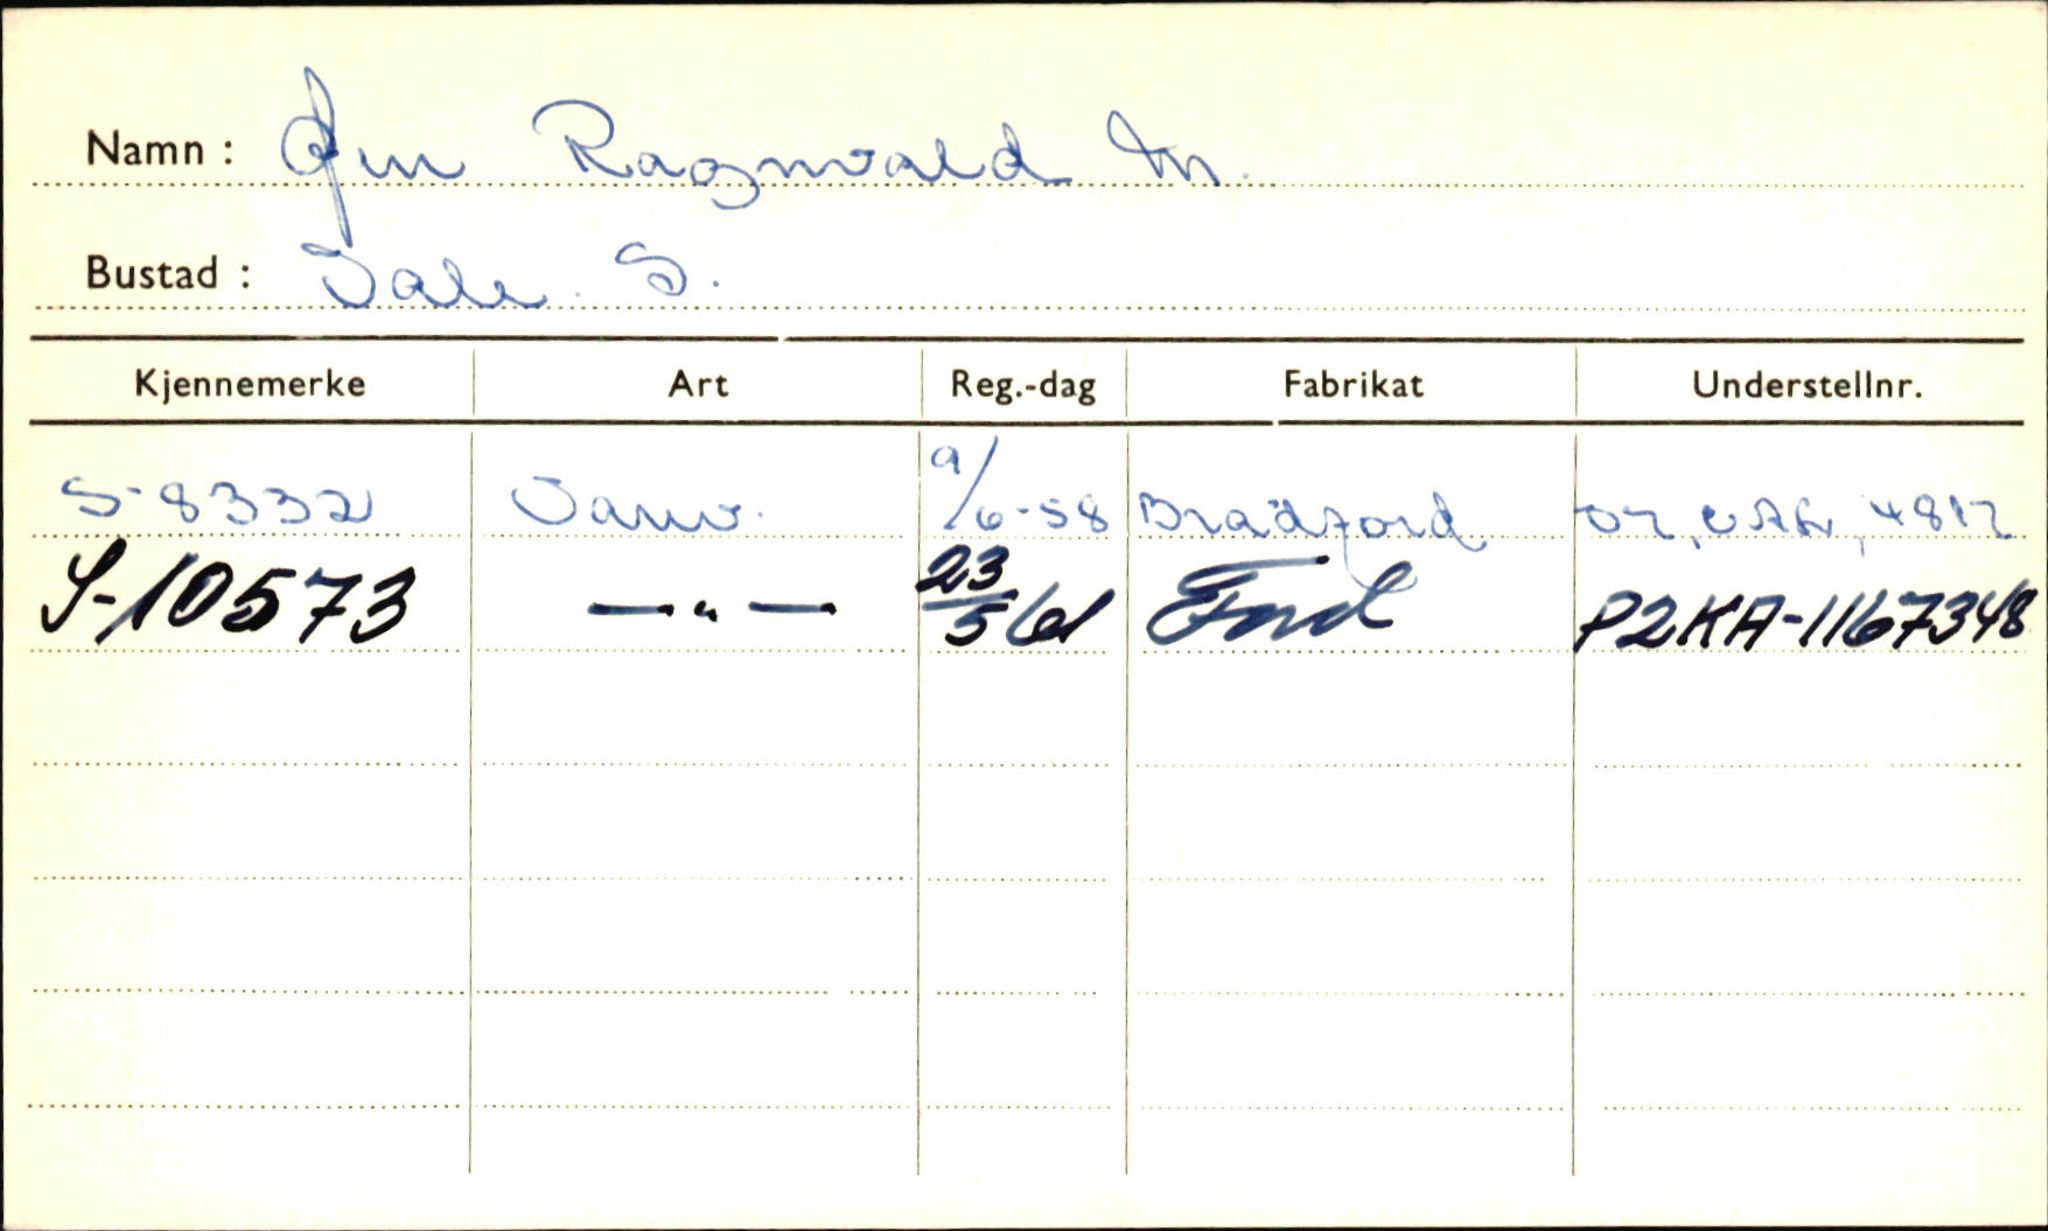 Namn : Øen Ragnvald M.
Bustad : Dale. S.
Kjennemerke Art Reg.-dag Fabrikat Understellnr.
S-8332 Varev. 9/6-58 Bradford 4817
S-10573 —"— 23/5 61 Ford P2KA-1167348